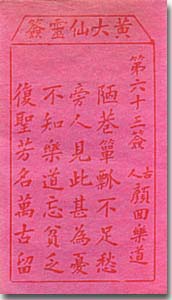 黃大仙靈簽
第六十三簽
古人
顏回樂道
陋巷簞瓢不足愁
旁人見此甚為憂
不知樂道忘貧乏
復聖芳名萬古留